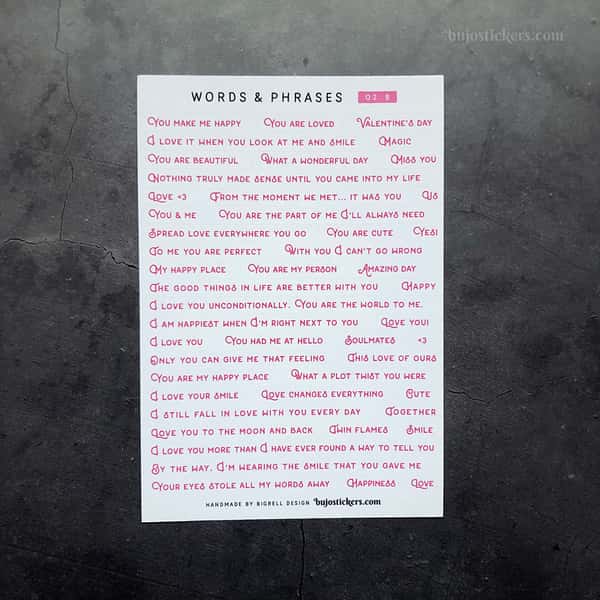 bujostickers.com
WORDS & PHRASES 02 B
You make me happy You are loved Valentine's day
I love it when you look at me and smile Magic
You are beautiful What a wonderful day Miss you
Nothing truly made sense until you came into my life
Love <3 From the moment we met... it was you Us
You & me You are the part of me I'll always need
Spread love everywhere you go You are cute Yes!
To me you are perfect With you I can't go wrong
My happy place You are my person Amazing day
The good things in life are better with you Happy
I love you unconditionally. You are the world to me.
I am happiest when I'm right next to you Love you!
I love you You had me at hello Soulmates <3
Only you can give me that feeling This love of ours
You are my happy place What a plot twist you were
I love your smile Love changes everything Cute
I still fall in love with you every day Together
Love you to the moon and back Twin flames Smile
I love you more than I have ever found a way to tell you
By the way, I'm wearing the smile that you gave me
Your eyes stole all my words away Happiness Love
HANDMADE BY BIGRELL DESIGN bujostickers.com